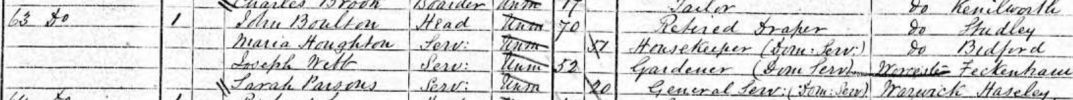 Charles Brook Boarder Unm 17 Tailor Do Kenilworth
63 Do 1 John Boulton Head Unm 70 Retired Draper Do Studley
Maria Houghton Serv: Unm 57 Housekeeper (Dom: Serv:) Do Bidford
Joseph Witt Serv: Unm 52 Gardener (Dom Serv) Worcester Feckenham
Sarah Parsons Serv: Unm 20 General Serv: (Dom: Serv) Warwick Haseley